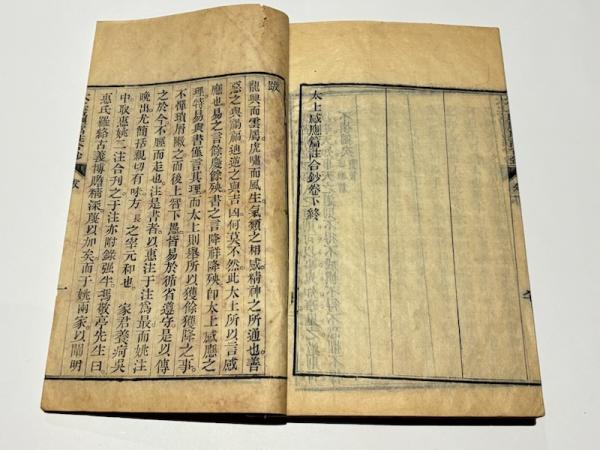 太上感應篇註合鈔卷下終
跋
龍興而雲屬虎嘯而風生氣類之相感精神之所通也善
惡之與禍福迪逆之與吉凶何莫不然此太上所以言感
應也易之言餘慶餘殃書之言降祥降殃卽太上感應之
理特易與書僅言其理而太上則舉所以獲餘獲降之事
不憚瑣屑臚之而後上智下愚皆易於循省遵守是以傳
之於今不脛而走也注是書者以惠注于注爲最而姚注
晚出尤簡括親切有味方長之宰元和也 家君養疴吳
中取惠姚二注合刊之于注亦附錄強半馮敬亭先生曰
惠氏羅絡古義博贍精深蔑以加矣而于姚兩家以闡明